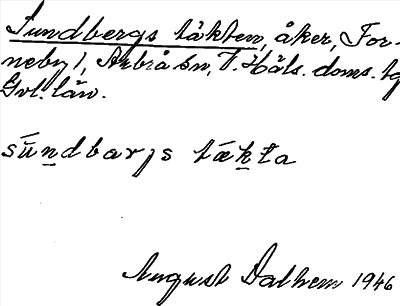 Sundbergs täkten, åker, For-
neby 1, Arbrå sn, V. Häls. doms. tg
Gvl. län.
sundbarjs tækta
August Dalhem 1946